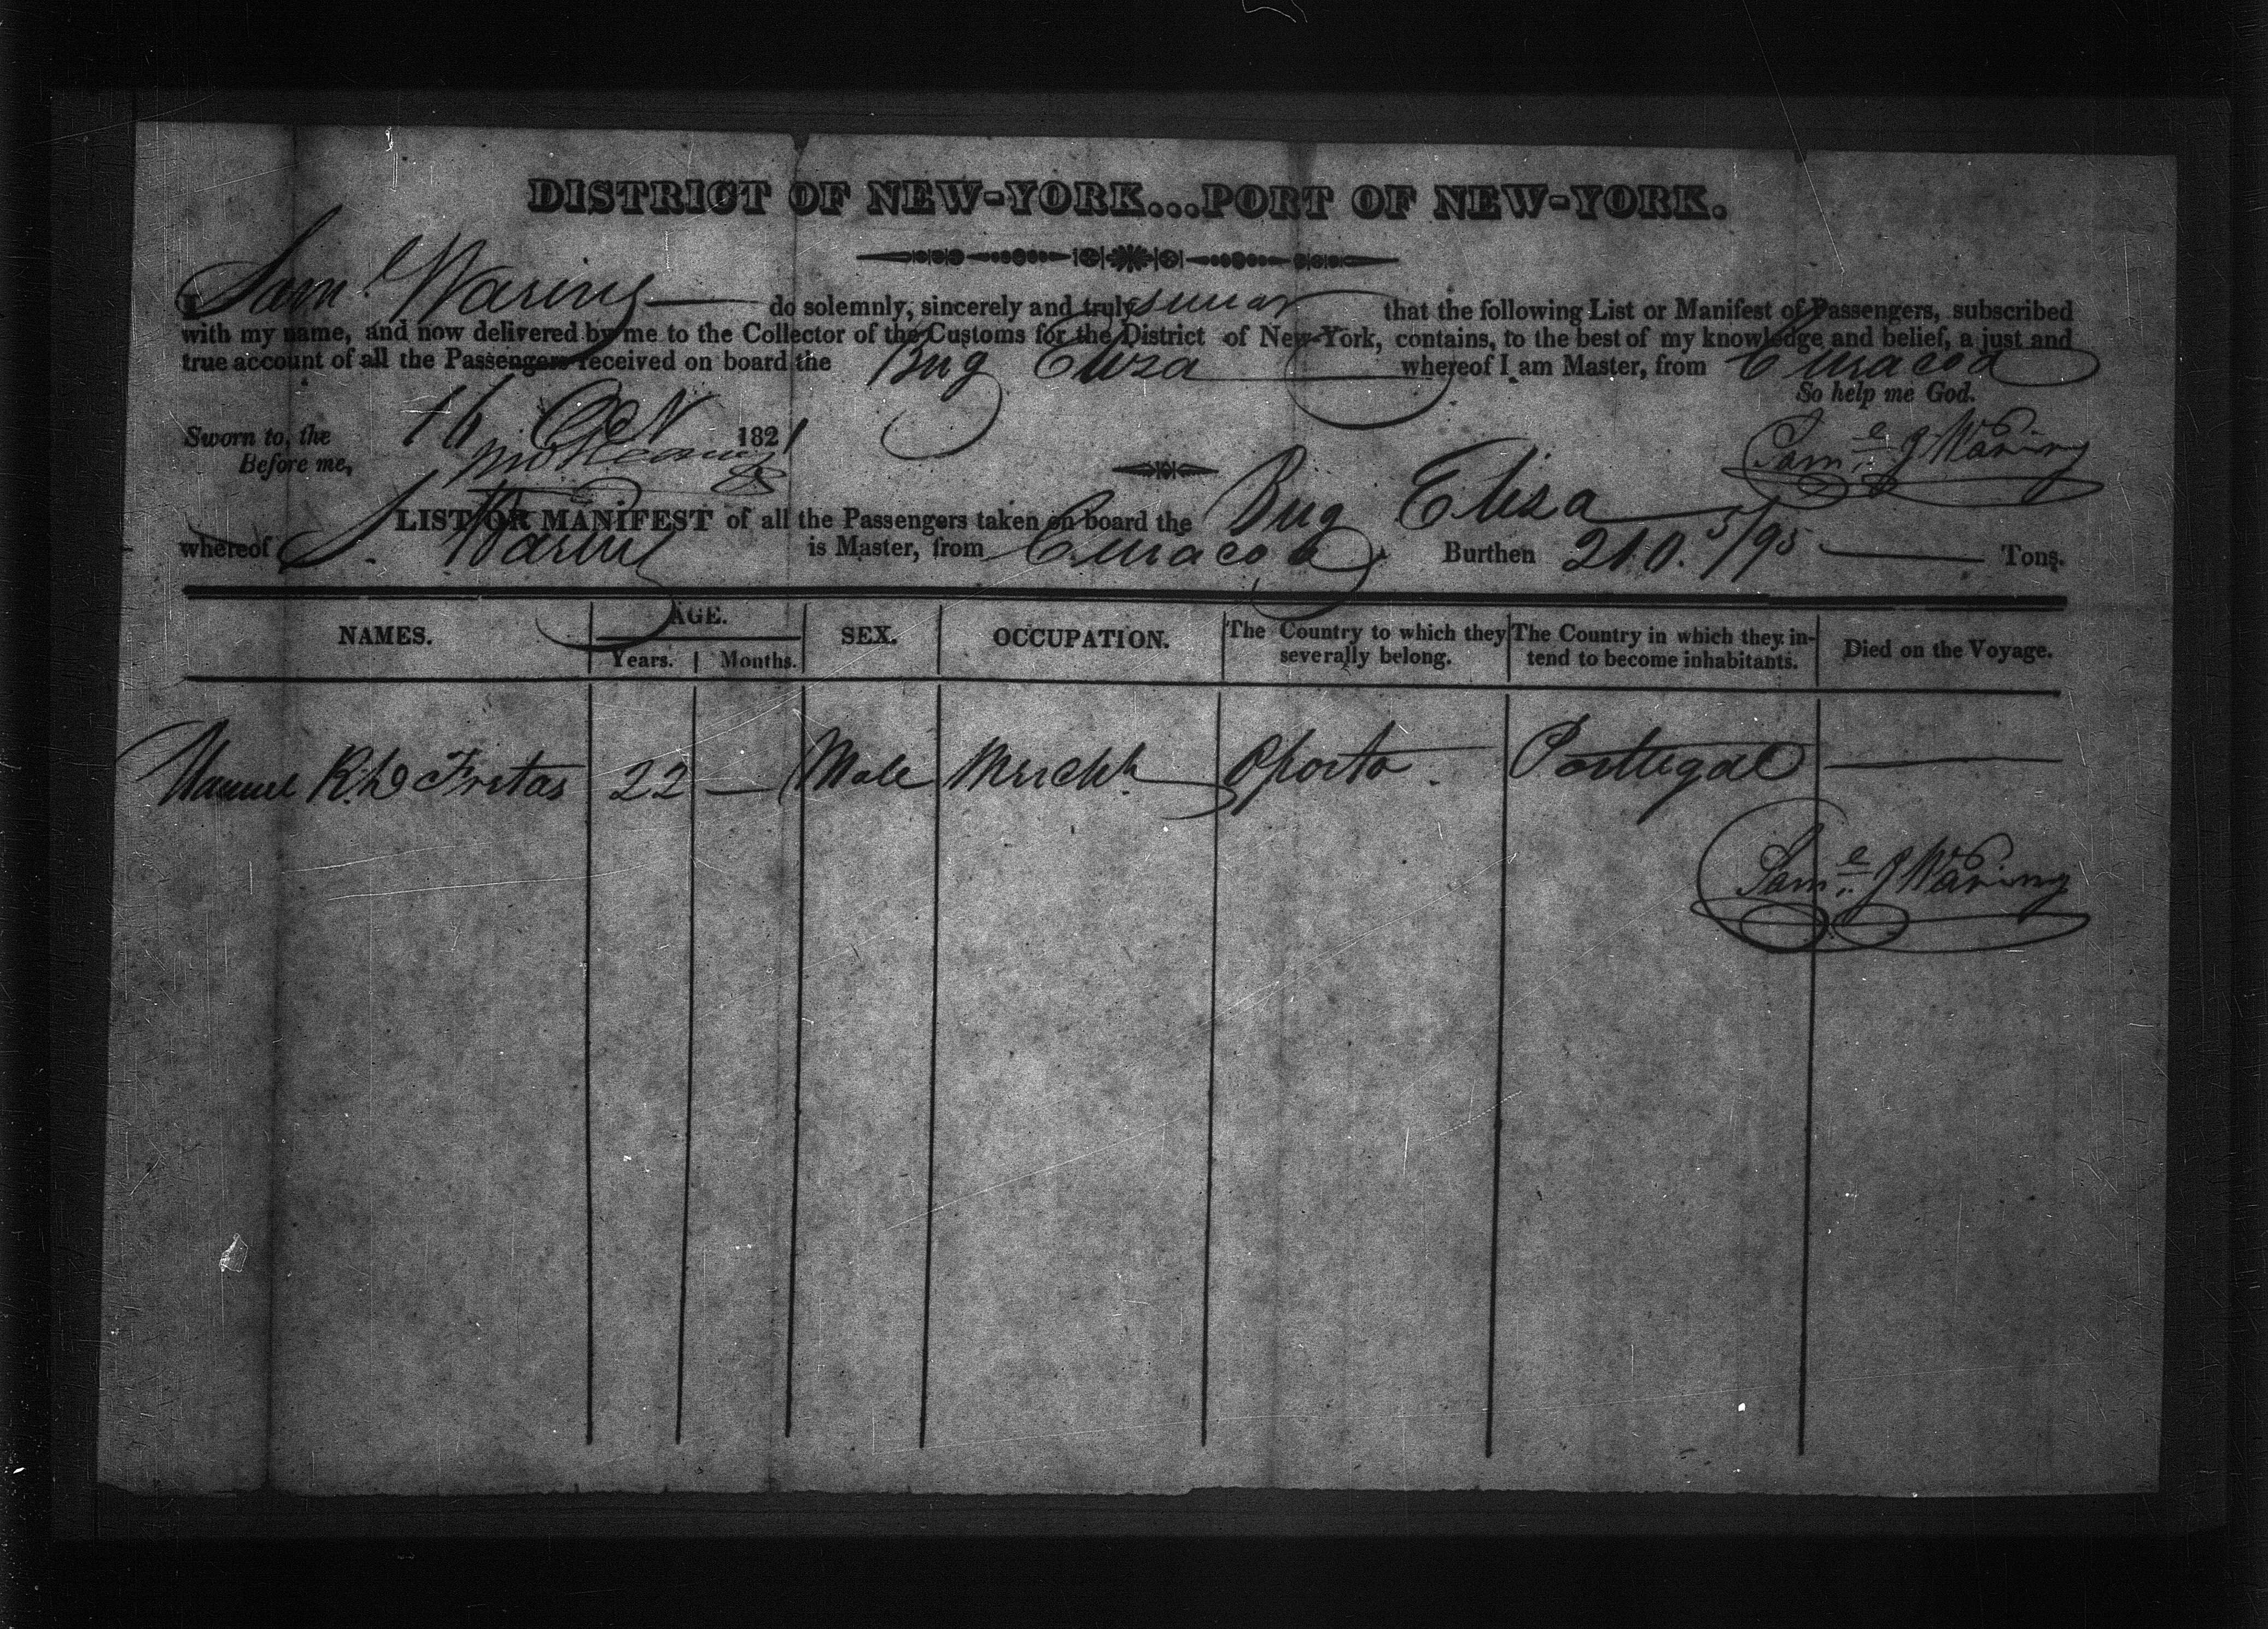 DISTRICT OF NEW-YORK...PORT OF NEW-YORK.
I Saml. Waring do solemnly, sincerely and truly swear that the following List or Manifest of Passengers, subscribed
with my name, and now delivered by me to the Collector of the Customs for the District of New-York, contains, to the best of my knowledge and belief, a just and
true account of all the Passengers received on board the Brig Eliza whereof I am Master, from Curacoa
So help me God.
Sworn to, the 16 Oct 1821
Before me,
Saml. J Waring
LIST OR MANIFEST of all the Passengers taken on board the Brig Eliza
whereof S. Waring is Master, from Curacoa Burthen 210. 5/95 Tons.
NAMES. AGE. SEX. OCCUPATION. The Country to which they severally belong. The Country in which they intend to become inhabitants. Died on the Voyage.
Years. Months.
Manuel Fritas 22 — Male Mercht. Oporto Portugal —
Saml. J Waring